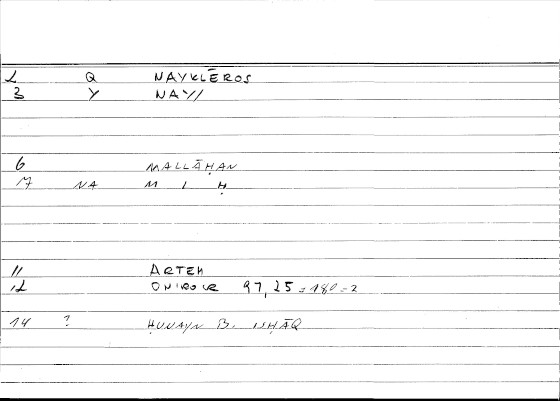 1 Q NAYKLĒROS
3 Y NAY//
6 MALLĀḤAN
17 NA M I Ḥ
11 ARTEM
12 ONIROCR 97,25 = 180 = 2
14 ? ḤUNAYN B. ISḤĀQ